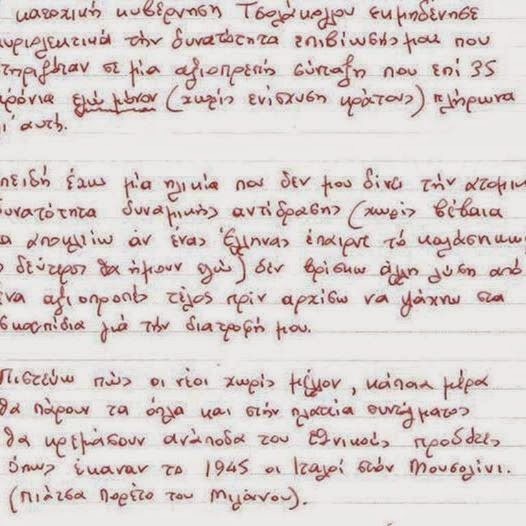 κατοχική κυβέρνηση Τσολάκογλου εκμηδένησε
κυριολεκτικά την δυνατότητα επιβίωσής μου που
στηριζόταν σε μία αξιοπρεπή σύνταξη που επί 35
χρόνια εγώ μόνον (χωρίς ενίσχυση κράτους) πλήρωνα
γι αυτή.
Επειδή έχω μία ηλικία που δεν μου δίνει την ατομικη
δυνατότητα δυναμικής αντίδρασης (χωρίς βέβαια
να αποκλείω άν ένας Έλληνας έπαιρνε το καλάσηκωφ
ο δεύτερος θα ήμουν εγώ) δέν βρίσκω άλλη λύση από
ένα αξιοπρεπές τέλος πρίν αρχίσω να ψάχνω στα
σκουπίδια γιά την διατροφή μου.
Πιστεύω πώς οι νέοι χωρίς μέλλον, κάποια μέρα
θα πάρουν τα όπλα και στην πλατεία συντάγματος
θα κρεμάσουν ανάποδα τους εθνικούς προδότες
όπως έκαναν το 1945 οι Ιταλοί στόν Μουσολίνι.
(Πιάτσα Πορέτο του Μιλάνου).